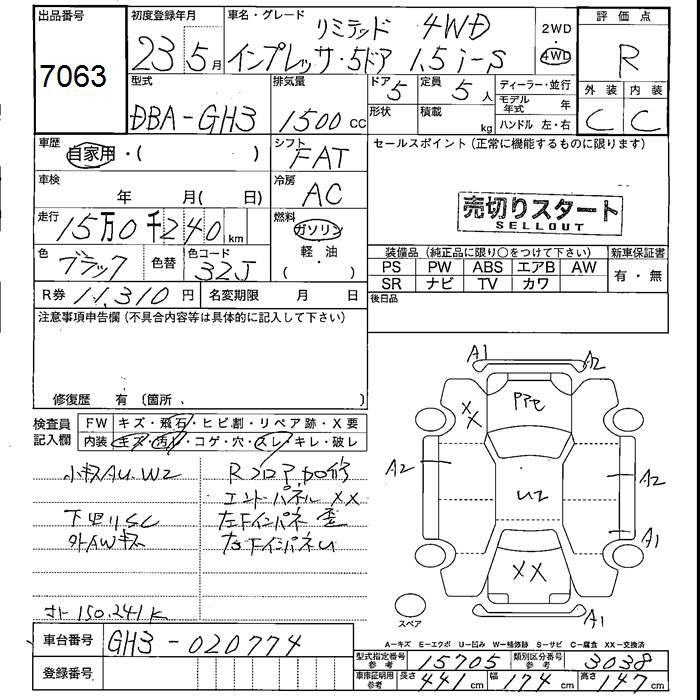 出品番号
7063
初度登録年月
23 5月
車名・グレード
リミテッド 4WD
インプレッサ・5ドア 1.5 i-S
2WD
4WD
評価点
R
外装 内装
C C
型式
DBA-GH3
排気量
1500 cc
ドア 5
定員 5人
形状
積載 kg
ディーラー・並行
モデル年式 年
ハンドル 左・右
車歴
自家用・( )
シフト
FAT
セールスポイント(正常に機能するものに限ります)
車検
年 月( 日)
冷房
AC
売切りスタート
SELLOUT
走行
15万0千240km
燃料
ガソリン
軽・油
( ・ )
色
ブラック
色替
色コード
32J
装備品(純正品に限り○をつけて下さい)
PS PW ABS エアB AW
SR ナビ TV カワ
新車保証書
有・無
R券 11,310円
名変期限 月 日
後日品
注意事項申告欄(不具合内容等は具体的に記入して下さい)
修復歴 有(箇所 )
検査員記入欄
FW キズ・飛石・ヒビ割・リペア跡・X要
内装 キズ・汚れ・コゲ・穴・スレ・キレ・破レ
小キズAU.W2
Rフロア加修
エンドパネル XX
下回りSC
左下インパネ歪
外AWキズ
右下インパネU
メーター 150.241K
A1
A2
XX
A2
U2
A2
A1
XX
A1
スペア
A-キズ E-エクボ U-凹み W-補修跡 S-サビ C-腐食 XX-交換済
車台番号
GH3-020774
登録番号
型式指定番号
参考
15705
類別区分番号
参考
3038
車庫証明用
参考
長さ 441cm
幅 174cm
高さ 147cm